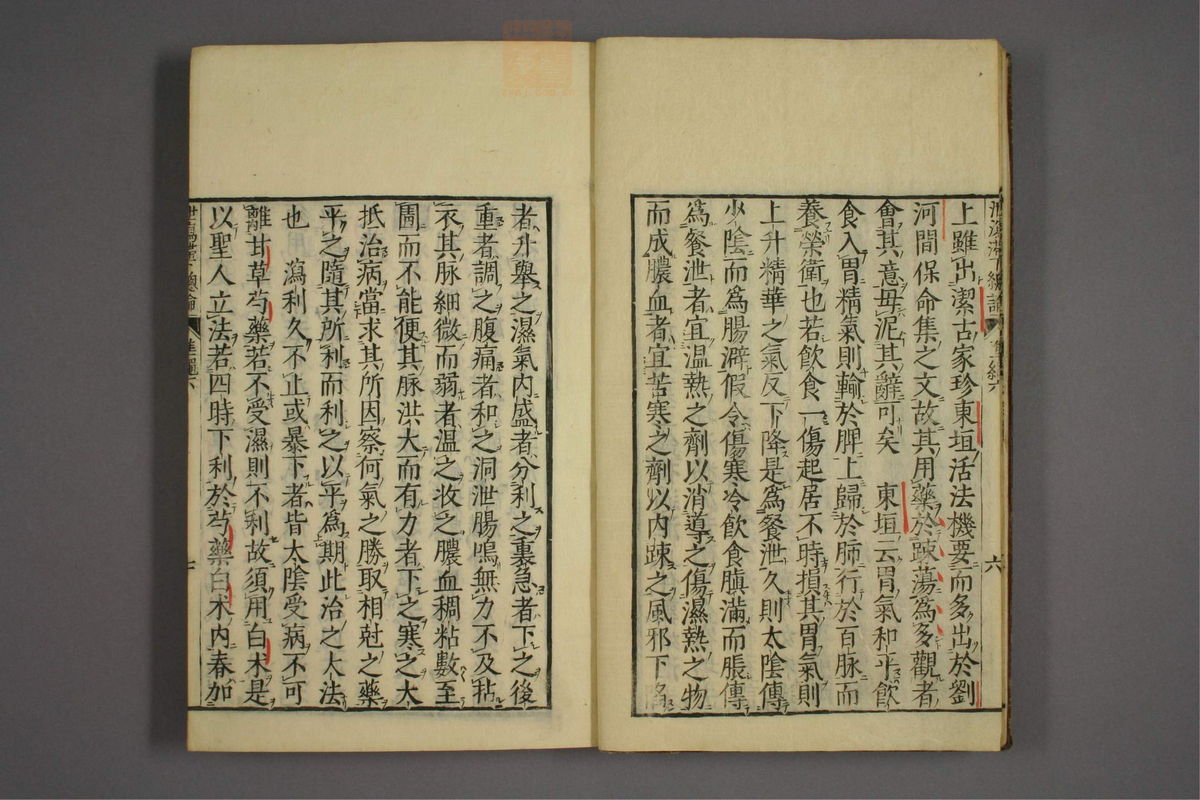 上雖出潔古家珍東垣活法機要而多出於劉
河間保命集之文故其用藥於踈蕩為多觀者
會其意毋泥其辭可矣　東垣云胃氣和平飲
食入胃精氣則輸於脾上歸於肺行於百脉而
養榮衛也若飲食一傷起居不時損其胃氣則
上升精華之氣反下降是為飧泄久則太陰傳
少陰而為腸澼假令傷寒冷飲食䐜滿而脹傳
為飧泄者宜温熱之劑以消導之傷濕熱之物
而成膿血者宜苦寒之劑以内踈之風邪下陷
者升舉之濕氣内盛者分利之裏急者下之後
重者調之腹痛者和之洞泄腸鳴無力不及拈
衣其脉細微而弱者温之收之膿血稠粘數至
圊而不能便其脉洪大而有力者下之寒之大
抵治病當求其所因察何氣之勝取相尅之藥
平之隨其所利而利之以平為期此治之大法
也　瀉利久不止或暴下者皆太陰受病不可
離甘草芍藥若不受濕則不利故須用白朮是
以聖人立法若四時下利於芍藥白朮内春加
六
七